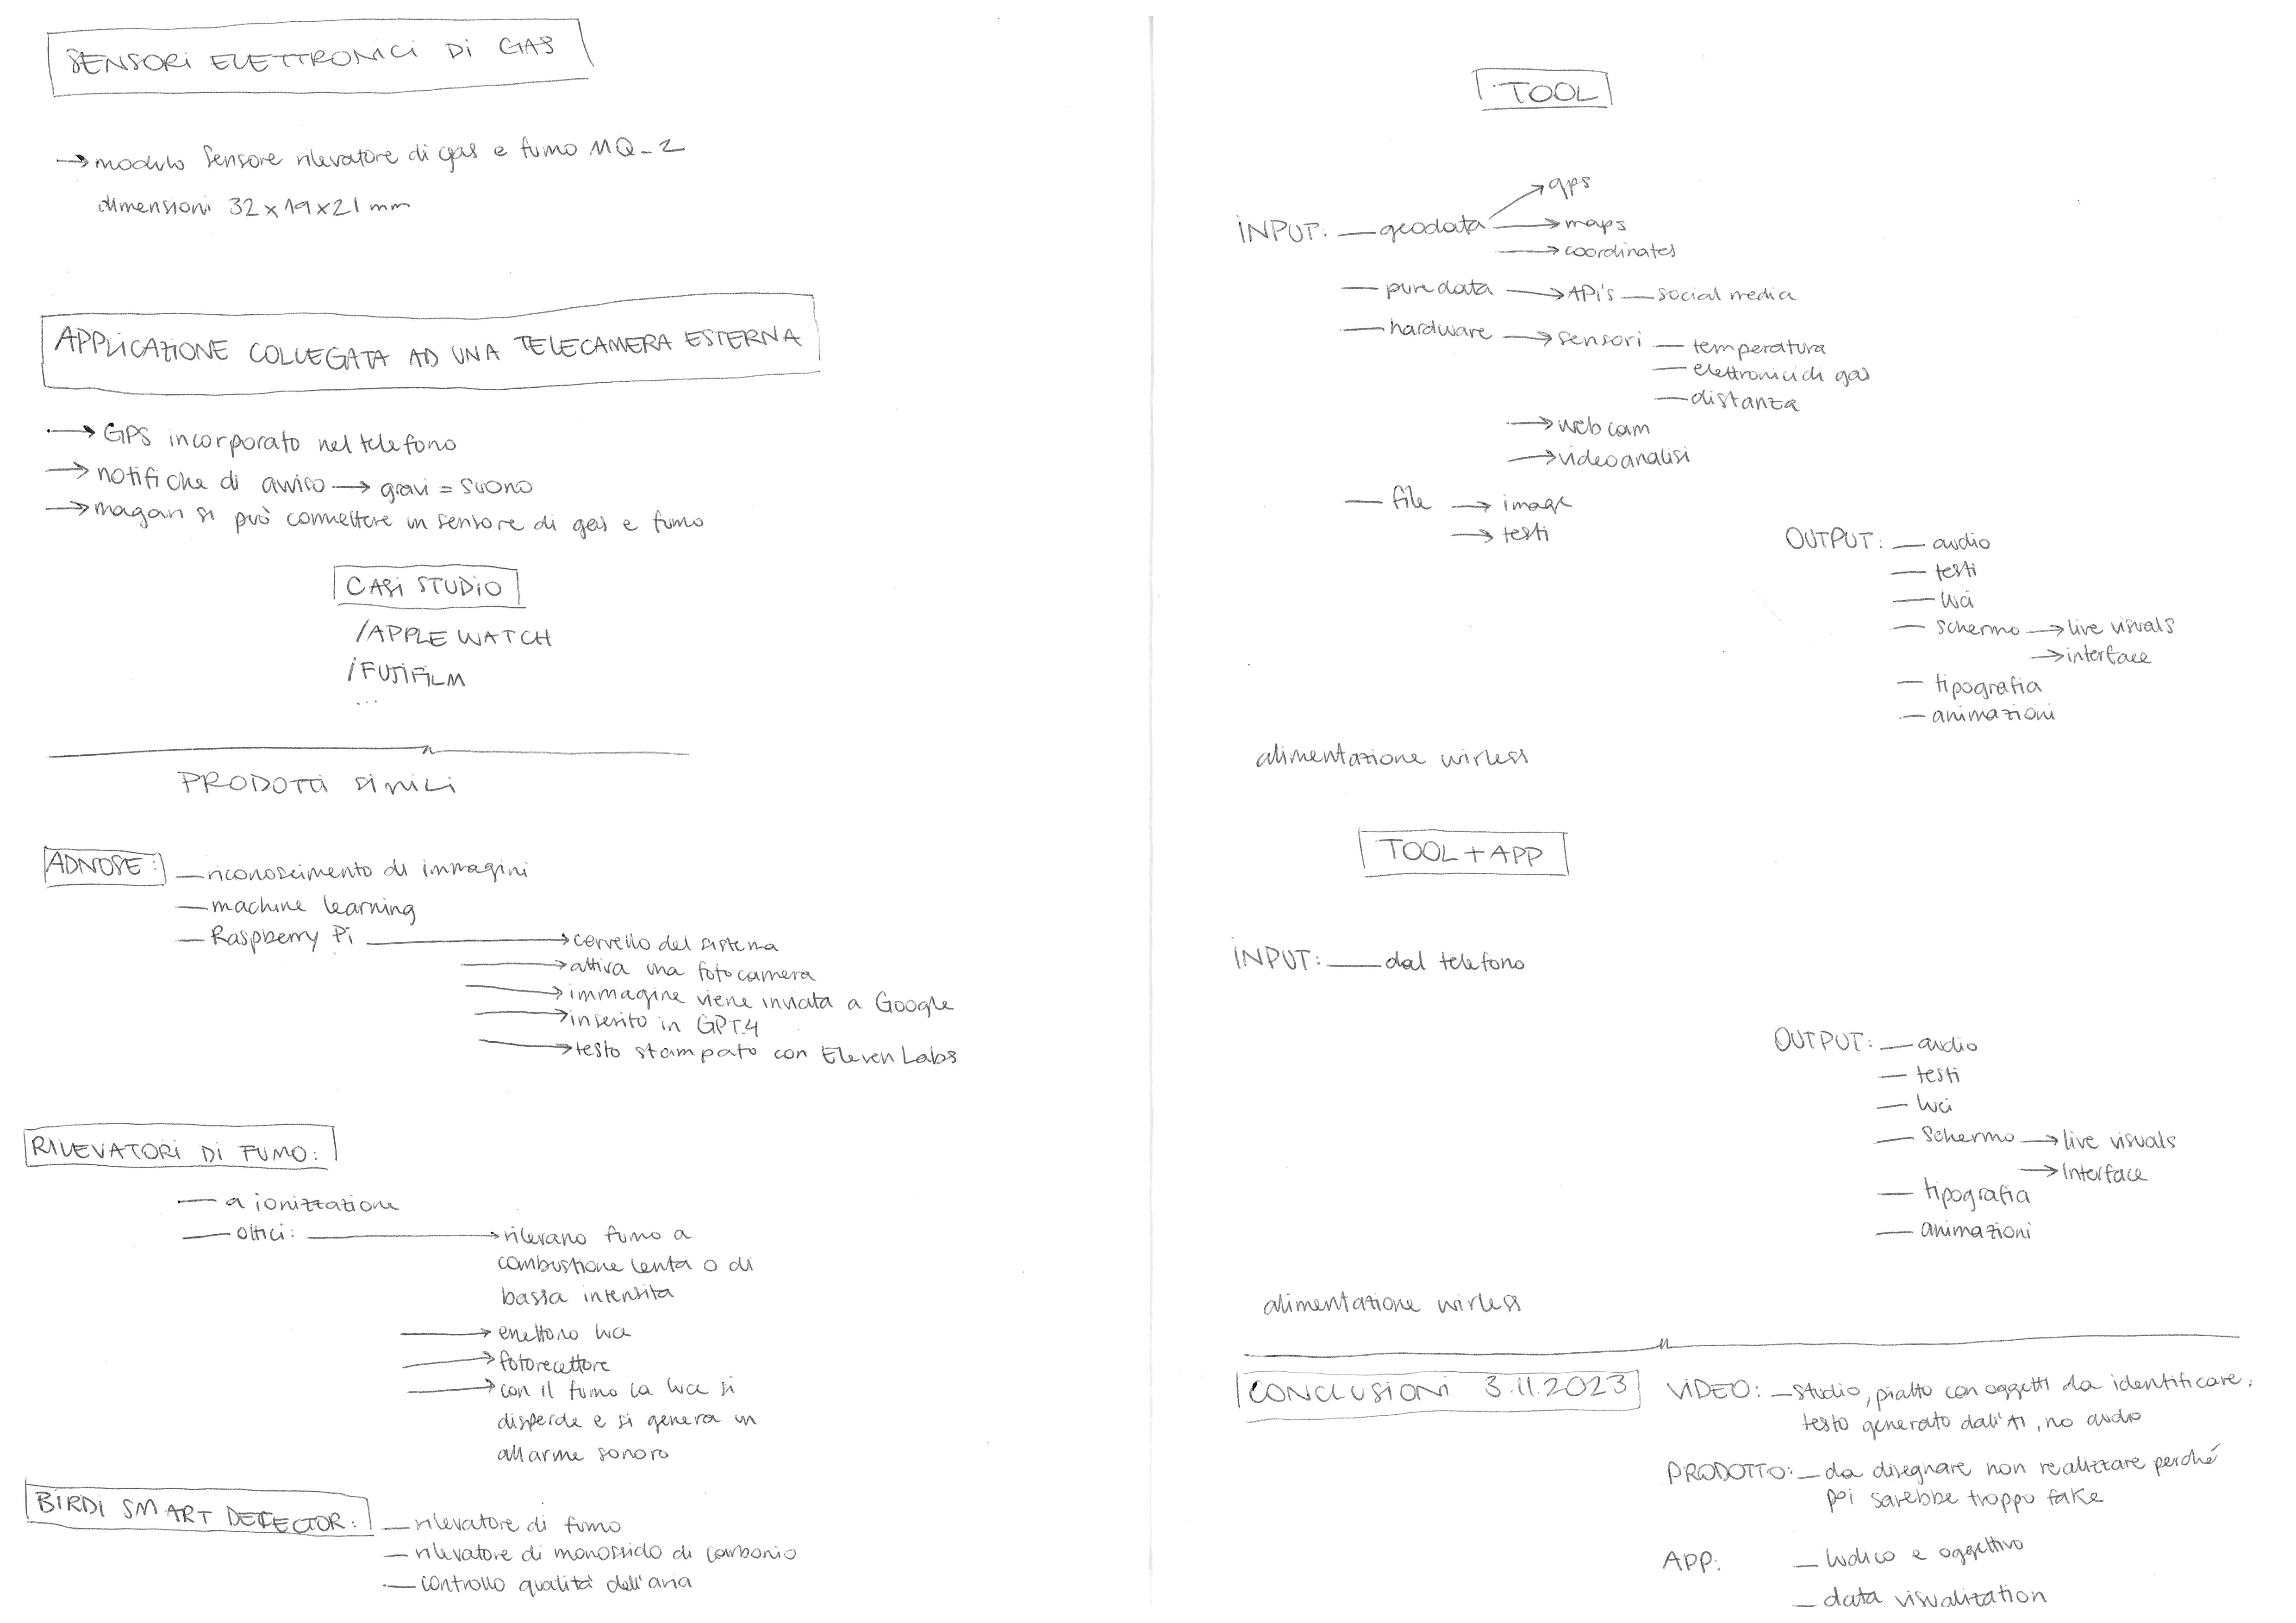 SENSORI ELETTRONICI DI GAS
→ modulo sensore rilevatore di gas e fumo MQ-2
dimensioni 32x19x21 mm
APPLICAZIONE COLLEGATA AD UNA TELECAMERA ESTERNA
→ GPS incorporato nel telefono
→ notifiche di avviso → gravi = suono
→ magari si può connettere un sensore di gas e fumo
CASI STUDIO
/APPLE WATCH
/FUJIFILM
...
PRODOTTI SIMILI
ADNOSE: — riconoscimento di immagini
— machine learning
— Raspberry Pi → cervello del sistema
→ attiva una fotocamera
→ immagine viene inviata a Google
→ inserito in GPT.4
→ testo stampato con Eleven Labs
RILEVATORI DI FUMO:
— a ionizzazione
— ottici: → rilevano fumo a
combustione lenta o di
bassa intensità
→ emettono luce
→ fotorecettore
→ con il fumo la luce si
disperde e si genera un
allarme sonoro
BIRDI SMART DETECTOR: — rilevatore di fumo
— rilevatore di monossido di carbonio
— controllo qualità dell'aria
TOOL
→ gps
INPUT: — geodata → maps
→ coordinates
— pure data → APi's — social media
— hardware → sensori — temperatura
— elettronici di gas
— distanza
→ web cam
→ videoanalisi
— file → image
→ testi
OUTPUT: — audio
— testi
— luci
— schermo → live visuals
→ interface
— tipografia
— animazioni
alimentazione wirless
TOOL + APP
INPUT: — dal telefono
OUTPUT: — audio
— testi
— luci
— schermo → live visuals
→ Interface
— tipografia
— animazioni
alimentazione wirless
CONCLUSIONI 3.11.2023
VIDEO: — studio, piatto con oggetti da identificare,
testo generato dall'AI, no audio
PRODOTTO: — da disegnare non realizzare perché
poi sarebbe troppo fake
APP: — ludico e oggettivo
— data visualization